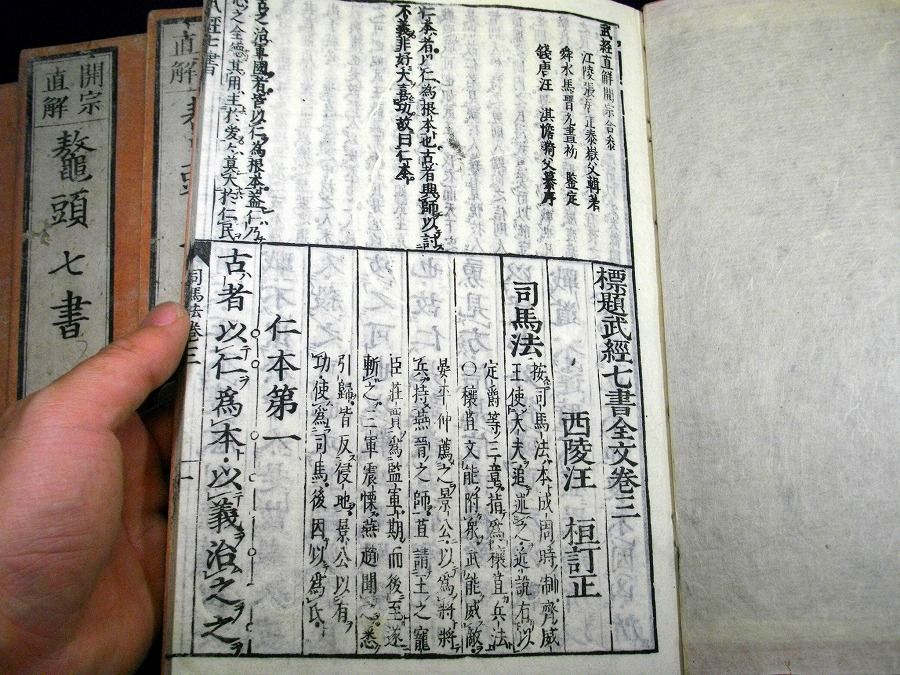 武經直解開宗合叅
江陵張居正泰嶽父輯著
舜水馬晋允晝初鑒定
錢唐汪淇憺漪父纂序
仁本者以仁為根本也古者興師以討
不義非好大喜功故曰仁本
古之治軍國者皆以仁為根本蓋仁乃
心之全德其用主於愛愛莫大於仁民
武經七書
標題武經七書全文卷三
西陵汪桓訂正
司馬法
按司馬法本成周時制齊威
王使大夫追述之近說有以
定爵等三章指為穰苴兵法
〇穰苴文能附衆武能威敵
晏平仲薦之景公以為將將
兵持燕晉之師苴請王之寵
臣莊賈為監軍期而後至遂
斬之三軍震慄燕趙聞之悉
引歸皆反侵地景公以有
功使為司馬後因以為氏
仁本第一
古者以仁為本以義治之之
司馬法卷三
一
開宗
直解
鼇頭七書
直解